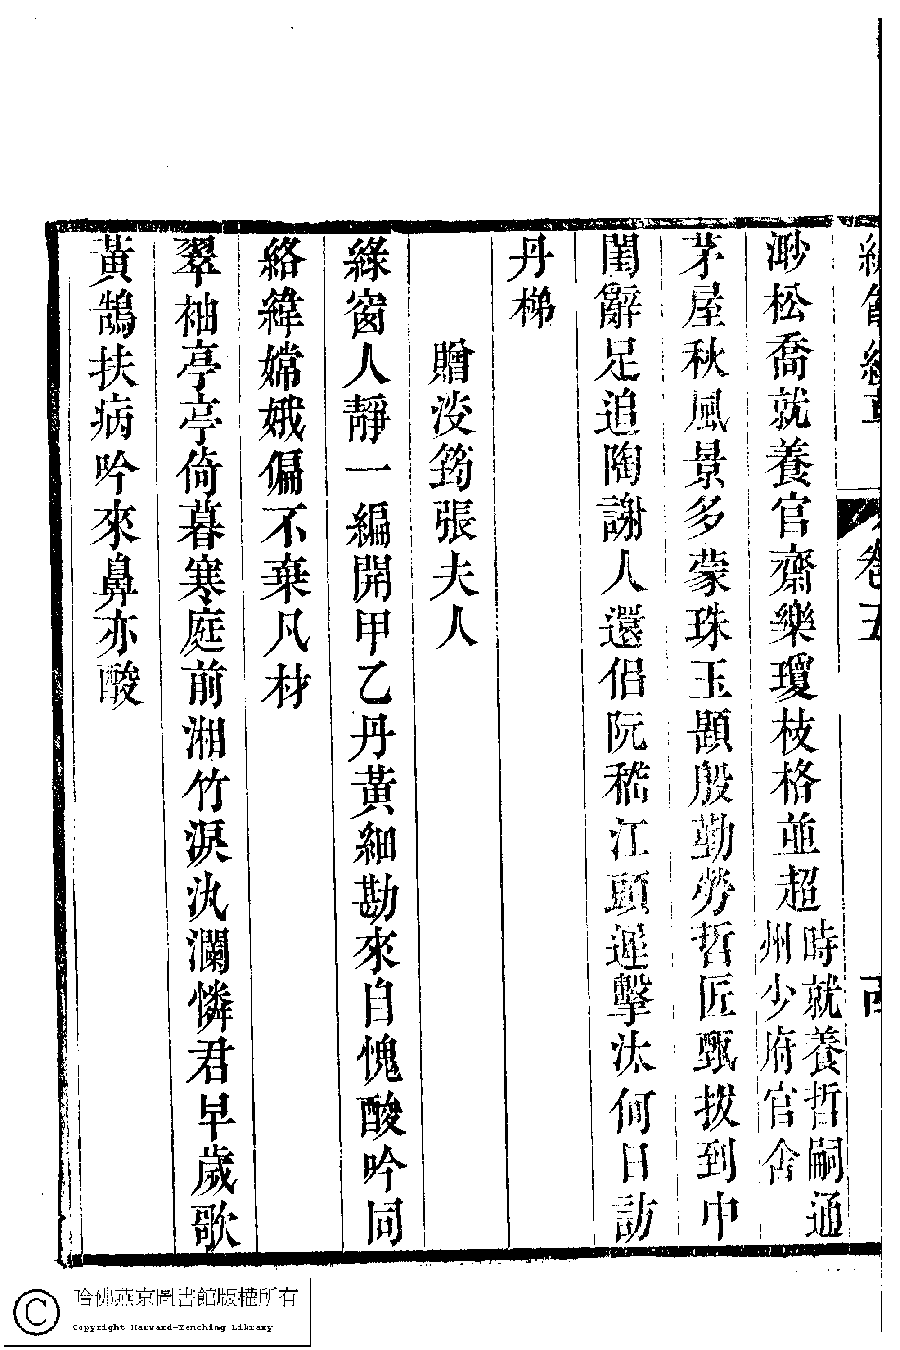 卷五
渺松喬就養官齋樂瓊枝格並超時就養哲嗣通州少府官舍
茅屋秋風景多蒙珠玉題殷勤勞哲匠甄拔到中
閨辭足追陶謝人還侶阮嵇江頭遲擊汰何日訪
丹梯
贈浚筠張夫人
綠窗人靜一編開甲乙丹黃細勘來自愧酸吟同
絡緯嫦娥偏不棄凡材
翠袖亭亭倚暮寒庭前湘竹淚汍瀾憐君早歲歌
黃鵠扶病吟來鼻亦酸
哈佛燕京圖書館版權所有
Copyright Harvard-Yenching Library